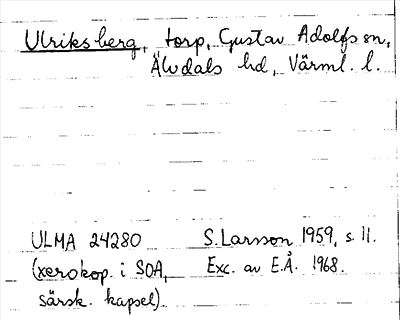 Ulriksberg, torp, Gustav Adolfs sn,
Älvdals hd, Värml. l.
ULMA 24280 S. Larsson 1959, s. 11.
(xerokop. i SOA, Exc. av E.Å. 1968.
särsk. kapsel).